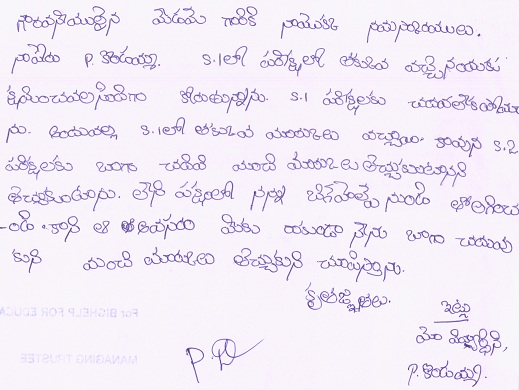 గౌరవనీయులైన మేడమ్ గారికి నాయొక్క నమస్కారములు.
నాపేరు P. కొండయ్య. S.1లో పరీక్షలలో తక్కువ వచ్చినందుకు
క్షమించవలసిందిగా కోరుతున్నాను. S.1 పరీక్షలకు చదువలేకపోయా
ను. అందువల్ల S.1లో తక్కువ మార్కులు వచ్చాయి. కావున S.2
పరీక్షలకు బాగా చదివి మంచి మార్కులు తెచ్చుకుంటానని
తెచ్చుకుంటాను. లేని పక్షంలో నన్ను బిగ్‌హెల్ప్ నుండి తొలగించ
-ండి. కాని ఆ అవసరం మీకు రాకుండా నేను బాగా చదువు
కుని మంచి మార్కులు తెచ్చుకుని చూపిస్తాను.
కృతజ్ఞతలు.
ఇట్లు
మీ విద్యార్థిని,
P. కొండయ్య.
For BIGHELP FOR EDUCA
MANAGING TRUSTEE